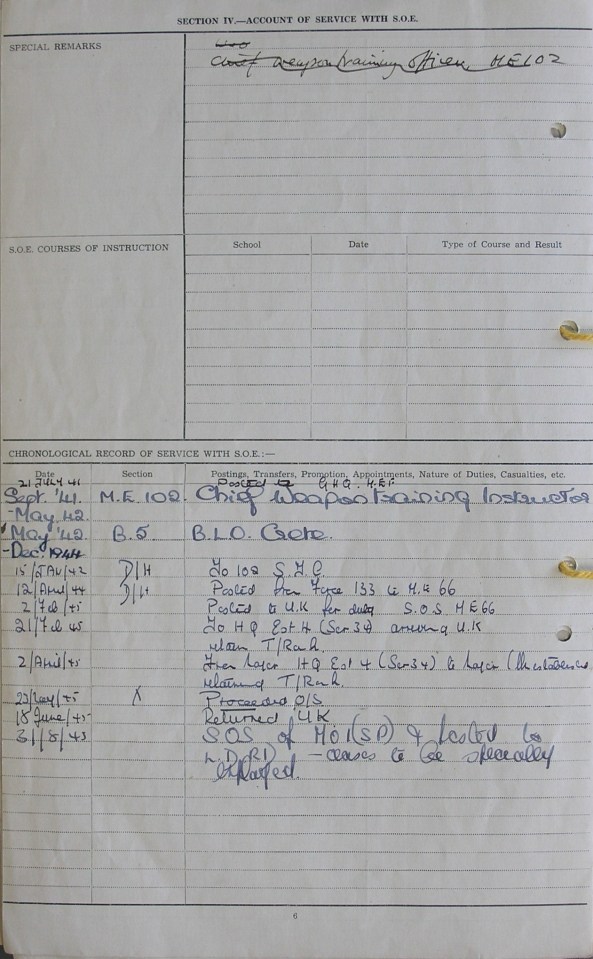 SECTION IV.—ACCOUNT OF SERVICE WITH S.O.E.
SPECIAL REMARKS
Chief Weapon training officer, ME102
S.O.E. COURSES OF INSTRUCTION
School Date Type of Course and Result
CHRONOLOGICAL RECORD OF SERVICE WITH S.O.E.:—
Date Section Postings, Transfers, Promotion, Appointments, Nature of Duties, Casualties, etc.
21 July 41 Posted to G.H.Q. M.E.F.
Sept. '41. M.E. 102. Chief Weapon Training Instructor
-May. 42.
May '42. B.5 B.L.O. Crete.
-Dec. 1944
15/JAN/42 D/H To 102 S.T.C.
12/April/44 D/H Posted from Force 133 to M.E 66
2/Feb/45 Posted to U.K for duty S.O.S ME66
21/Feb 45 To HQ Est 4 (Ser 34) arriving U.K
retain T/Rank.
2/April/45 From Major HQ Est 4 (Ser 34) to Major
retaining T/Rank.
23/May/45 X Proceeded O/S
18 June/45 Returned UK
31/8/45 SOS of MO1(SP) & posted to
- ceases to be specially
employed.
6